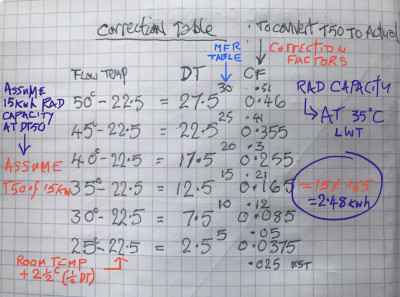 Correction Table
· To convert T50 To Actual
MFR TABLE
CORRECTION FACTORS
FLOW TEMP DT CF
ASSUME 15Kwh RAD CAPACITY AT DT50
30 .51
50°-22.5 = 27.5 0.46
25 .41
45°-22.5 = 22.5 0.355
20 .3
40°-22.5 = 17.5 0.255
15 .21
35°-22.5 = 12.5 0.165
10 .12
30°-22.5 = 7.5 0.085
5 .05
25°-22.5 = 2.5 0.0375
.025 EST
ASSUME T50 of 15kw
RAD CAPACITY
↳ AT 35°C LWT
= 15 x .165
= 2.48 kwh
ROOM TEMP
+ 2½° (½ DT)